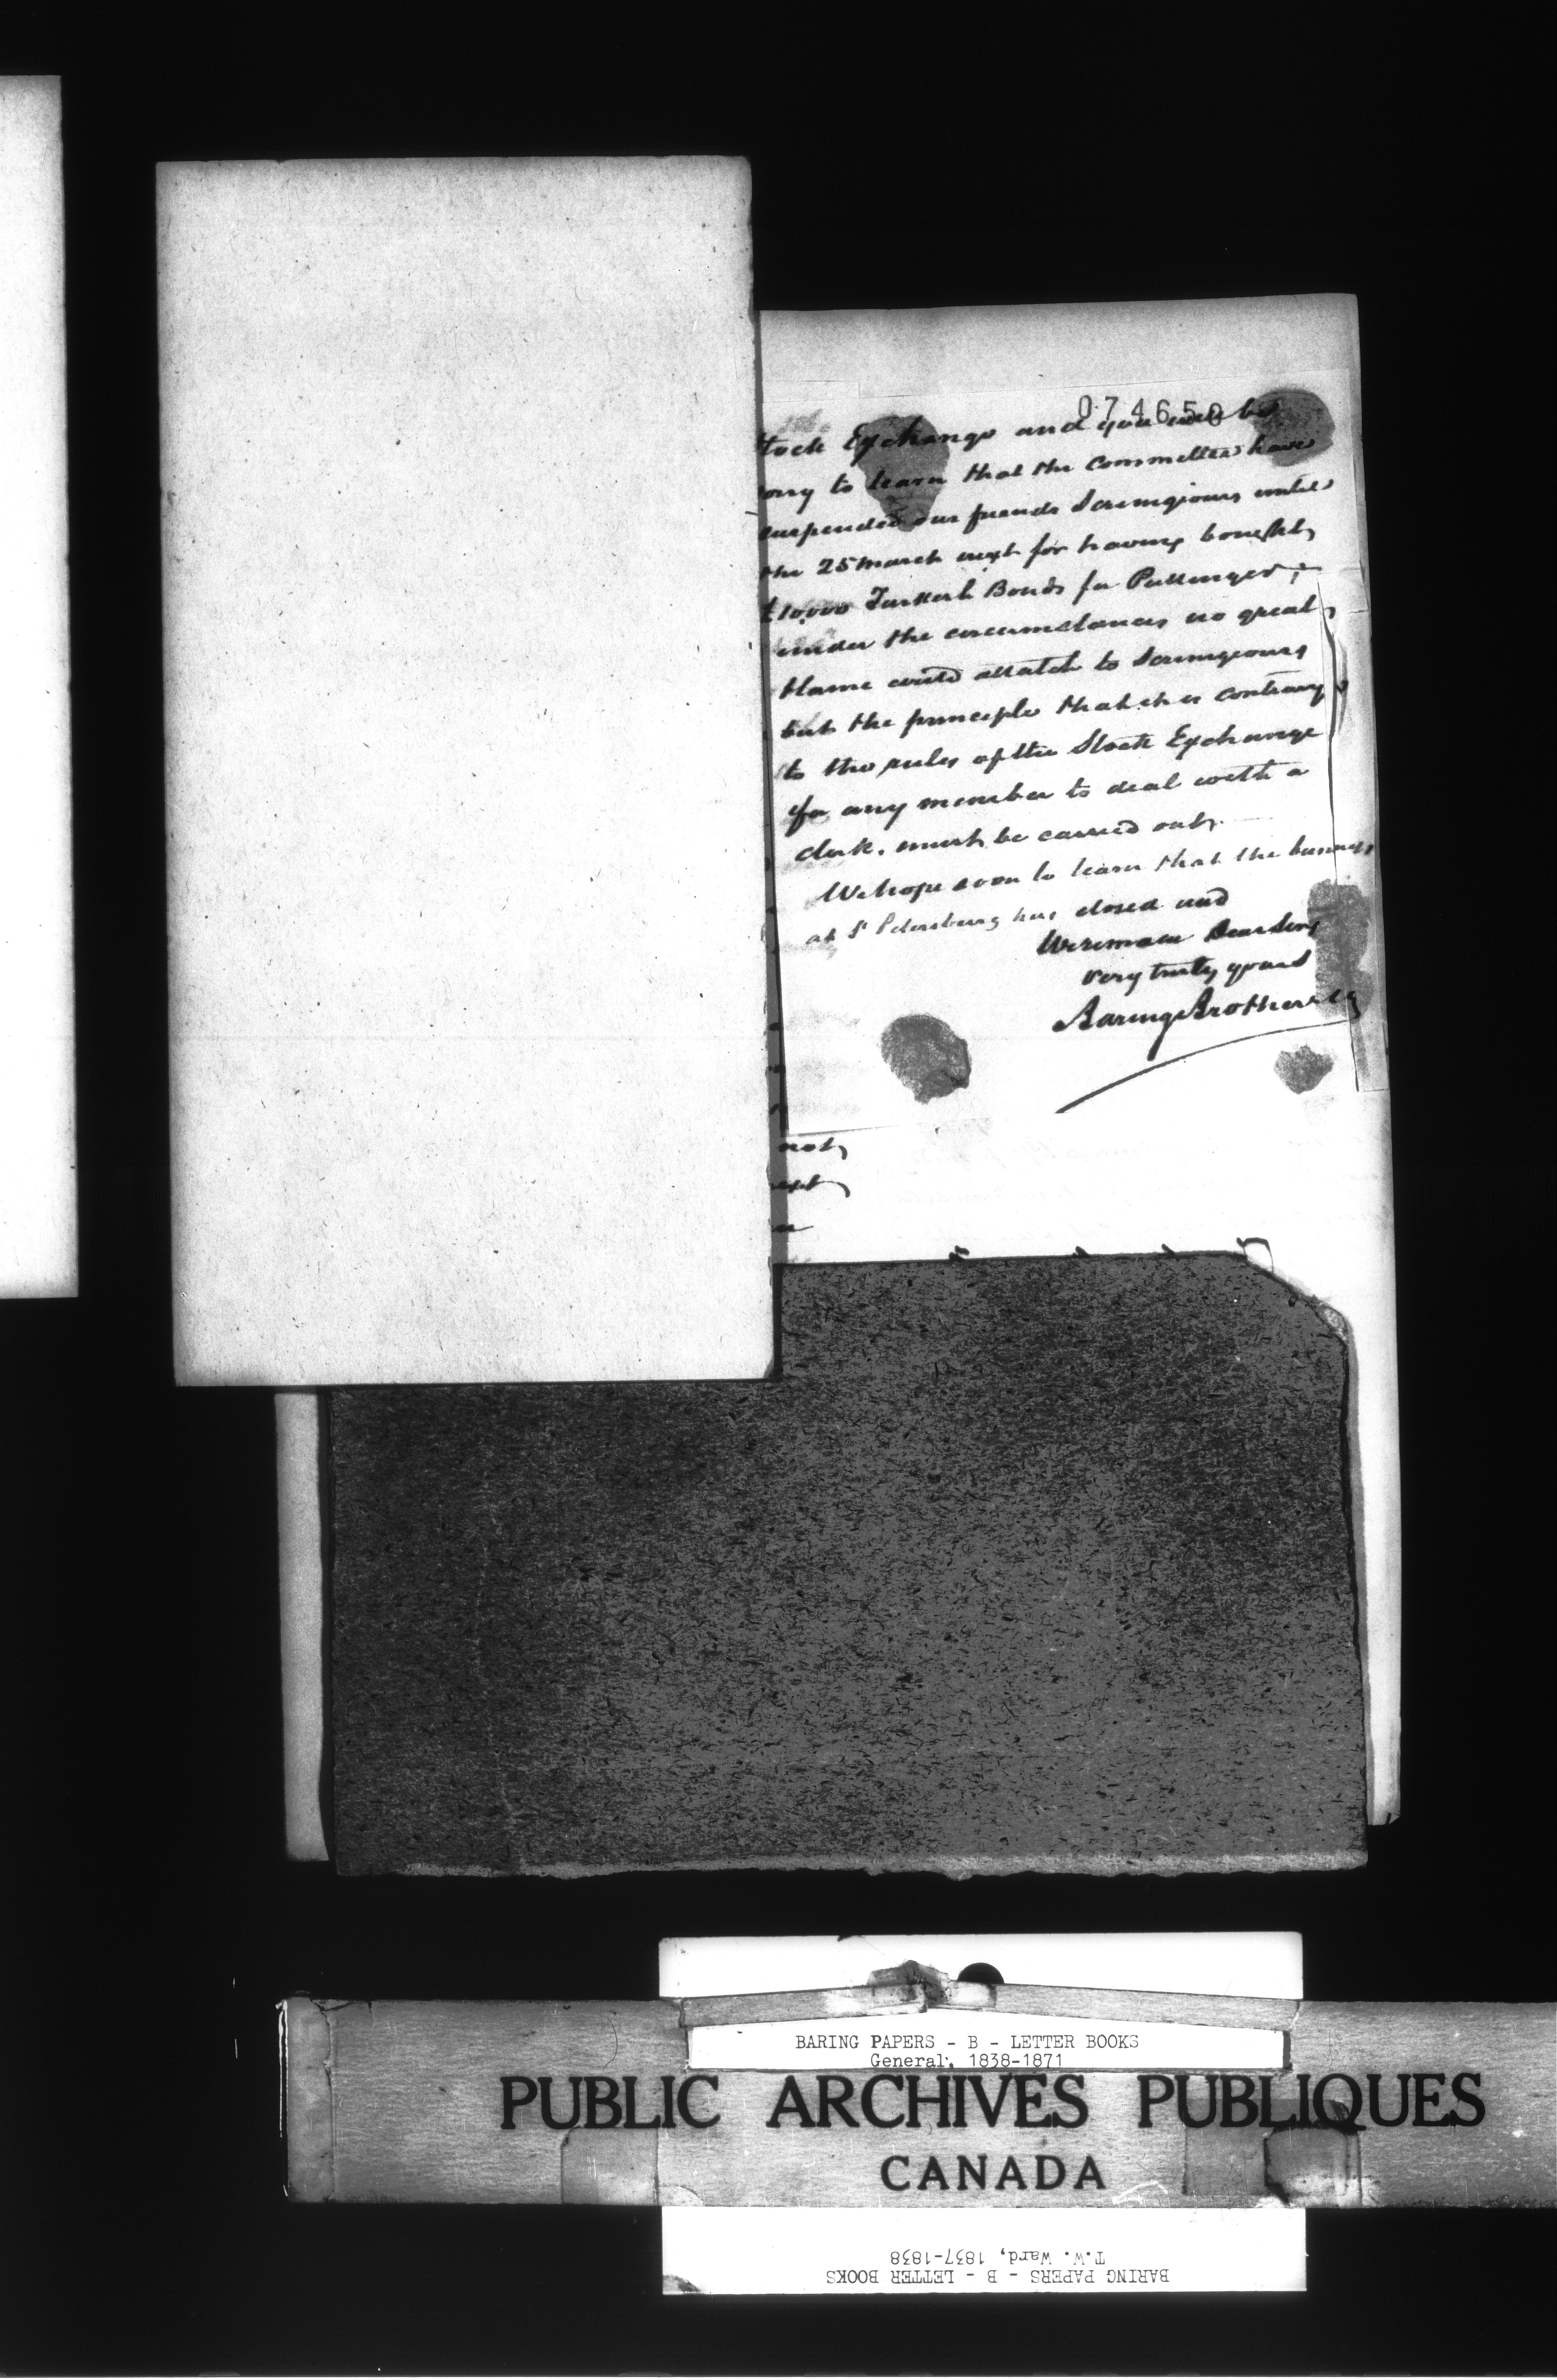 074650
Stock Exchange and you will be
sorry to learn that the committee have
suspended our friends Scrimgeours until
the 25 March next for having bought
£10,000 Turkish Bonds for Pullinger,
under the circumstances no great
blame could attatch to Scrimgeours
but the principle that it is contrary
to the rules of the Stock Exchange
for any member to deal with a
clerk, must be carried out.
We hope soon to learn that the business
at St Petersburg has closed and
We remain Dear Sirs
very truly yours
Baring Brothers & Co
not
next
BARING PAPERS - B - LETTER BOOKS
General, 1838-1871
PUBLIC ARCHIVES PUBLIQUES
CANADA
BARING PAPERS - B - LETTER BOOKS
T.W. Ward, 1837-1838